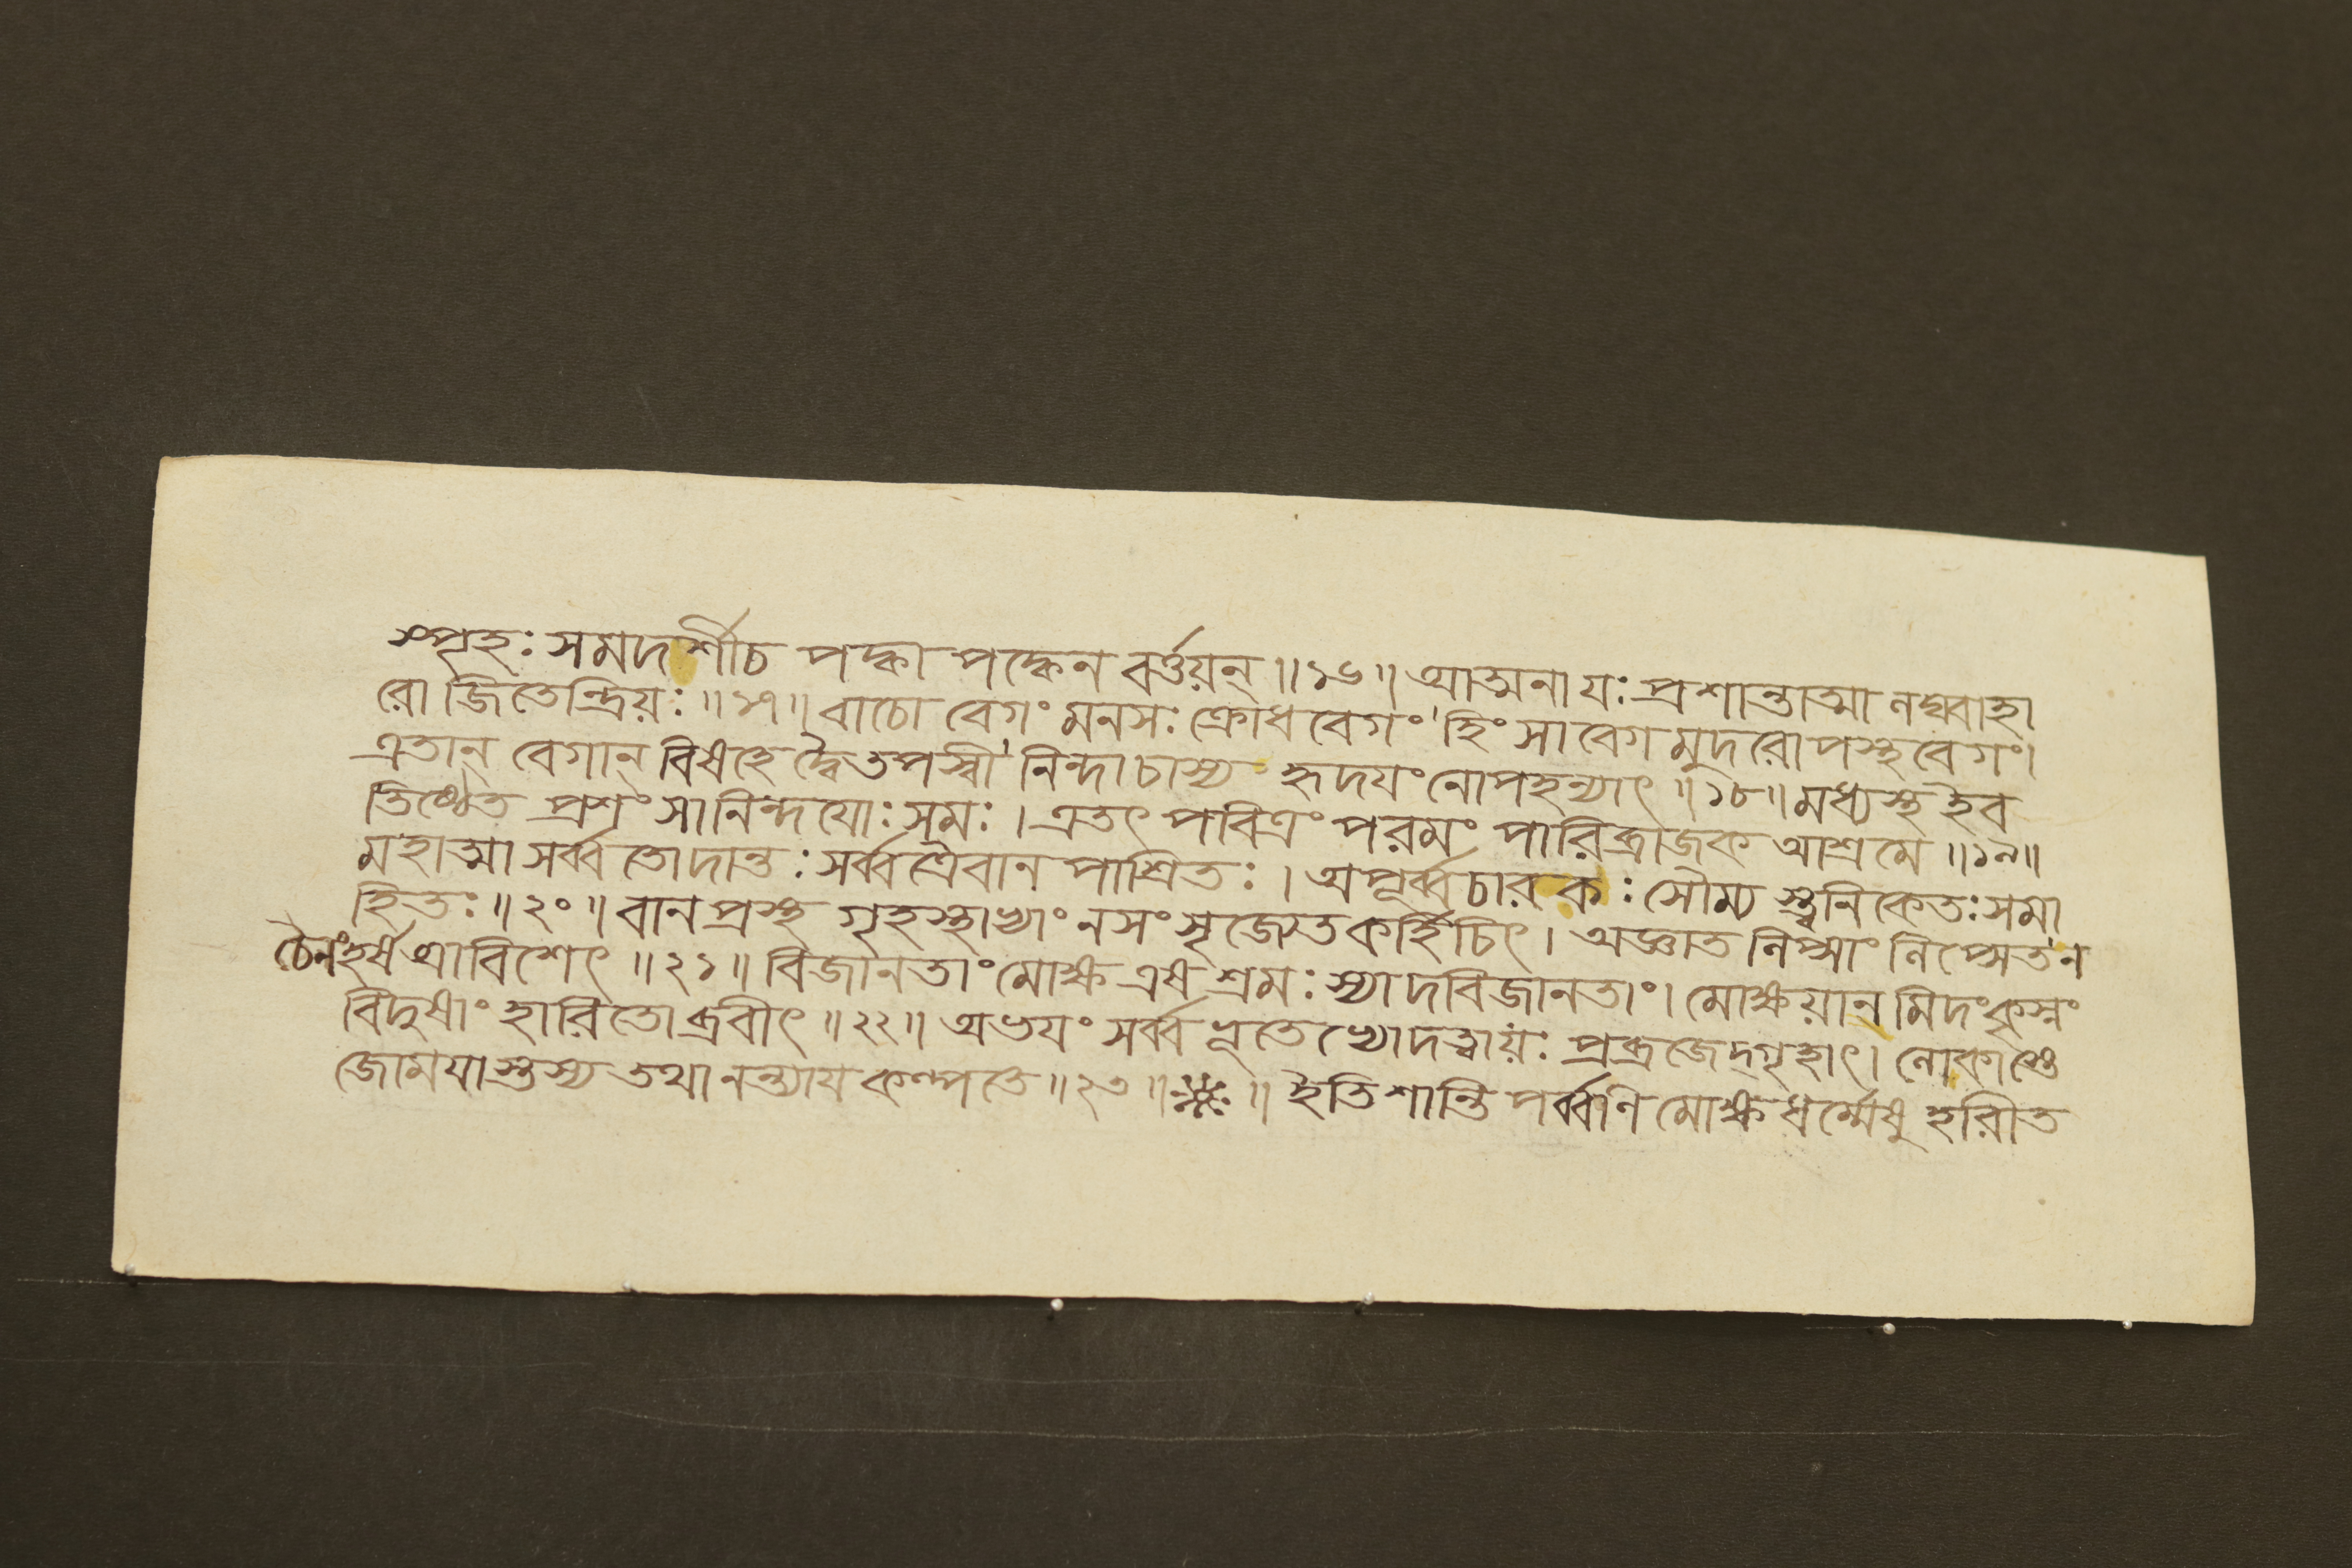 স্পৃহঃ সমদর্শীচ পক্বাপক্বেন বর্ত্তয়ন্ ॥ ১৬ ॥ আত্মনা যঃ প্রশান্তাত্মা লঘ্বাহা
রো জিতেন্দ্রিয়ঃ ॥ ১৭ ॥ বাচো বেগং মনসঃ ক্রোধ বেগং হিংসাবেগমুদরোপস্থ বেগং।
এতান্ বেগান্ বিষহেদ্বৈতপস্বী নিন্দাচাস্য হৃদয়ং নোপহন্যাৎ ॥ ১৮ ॥ মধ্যস্থ ইব
তিষ্ঠেত প্রশংসানিন্দয়োঃ সমঃ । এতৎ পবিত্রং পরমং পারিব্রাজক আশ্রমে ॥ ১৯ ॥
মহাত্মা সর্ব্বতোদান্তঃ সর্ব্বত্রৈবানপাশ্রিতঃ । অপূর্ব্বচারকঃ সৌম্যস্ত্বনিকেতঃ সমা
হিতঃ ॥ ২০ ॥ বানপ্রস্থ গৃহস্থাভ্যাং নসংসৃজ্যেতকর্হিচিৎ । অজ্ঞাত লিপ্সাং লিপ্সেত ন
চৈনং হর্ষ আবিশেৎ ॥ ২১ ॥ বিজানতাং মোক্ষ এষ শ্রমঃ স্যাদবিজানতাং। মোক্ষয়ানমিদং কৃৎস্নং
বিদুষাং হারিতোব্রবীৎ ॥ ২২ ॥ অভয়ং সর্ব্বভূতেভ্যোদত্ত্বায়ঃ প্রব্রজেদ্গৃহাৎ। লোকাস্তে
জোময়াস্তস্য তথানন্ত্যায় কল্পতে ॥ ২৩ ॥ ॥ ইতি শান্তিপর্ব্বণি মোক্ষধর্ম্মেষু হরীত